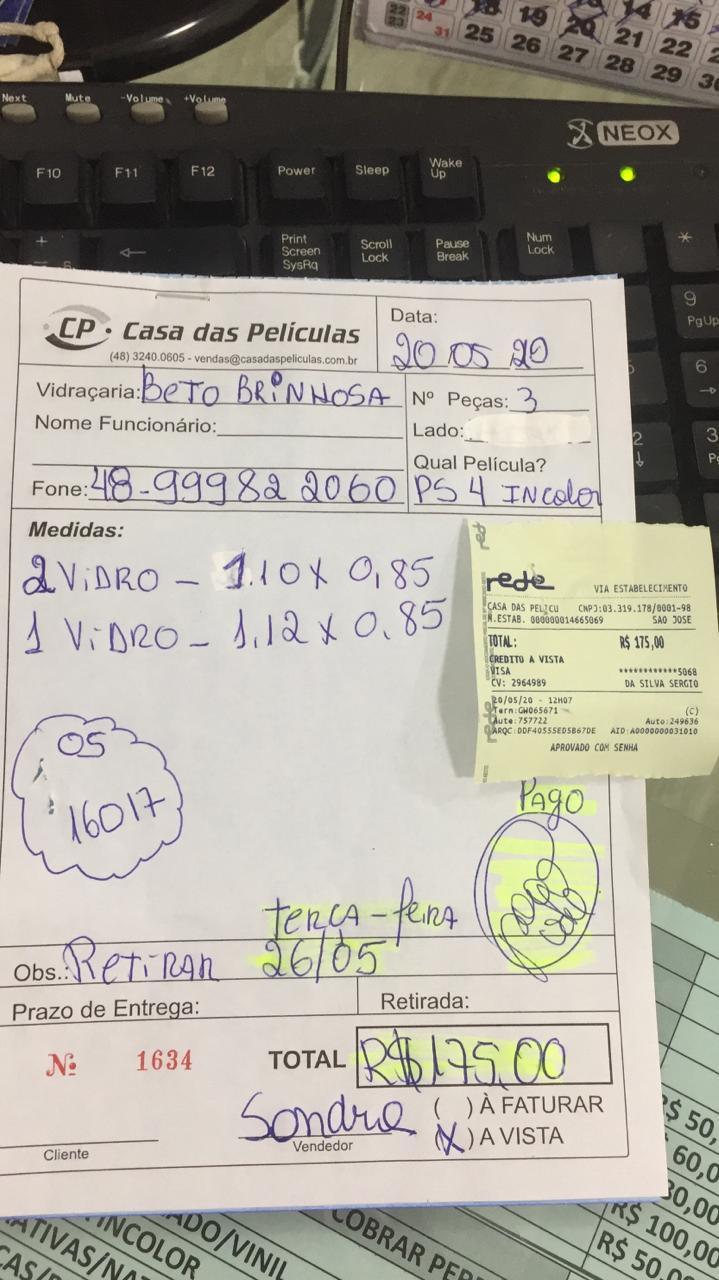 22 23 24 31
18 19 20 14 15
25 26 27 21 22
28 29 30
Next Mute -Volume +Volume
NEOX
F10 F11 F12 Power Sleep Wake Up
Print Screen SysRq Scroll Lock Pause Break Num Lock *
9 PgUp
6
3
2
CP · Casa das Películas
(48) 3240.0605 - vendas@casadaspeliculas.com.br
Data:
20 05 20
Vidraçaria: BETO BRINHOSA
Nº Peças: 3
Nome Funcionário:
Lado:
Qual Película?
Fone: 48-99982 2060
PS 4 INColor
Medidas:
2 ViDRO - 1.10 X 0,85
1 ViDRO - 1,12 X 0.85
rede
VIA ESTABELECIMENTO
CASA DAS PELICU CNPJ:03.319.178/0001-98
N.ESTAB. 000000014665069 SAO JOSE
TOTAL: R$ 175,00
CREDITO A VISTA
VISA ************5068
CV: 2964989 DA SILVA SERGIO
20/05/20 - 12H07
Term:GW065671 (C)
Aute:757722 Auto:249636
ARQC:DDF40555ED5B67DE AID:A0000000031010
APROVADO COM SENHA
05
16017
PAGO
TERÇA-feiRA
Obs.: RETIRAR 26/05
Prazo de Entrega:
Retirada:
Nº 1634
TOTAL R$175,00
Sondra
Vendedor
( ) À FATURAR
(X) A VISTA
Cliente
R$ 50,
60,0
R$ 100,00
R$ 50,0
ADO/VINIL
INCOLOR
COBRAR PER